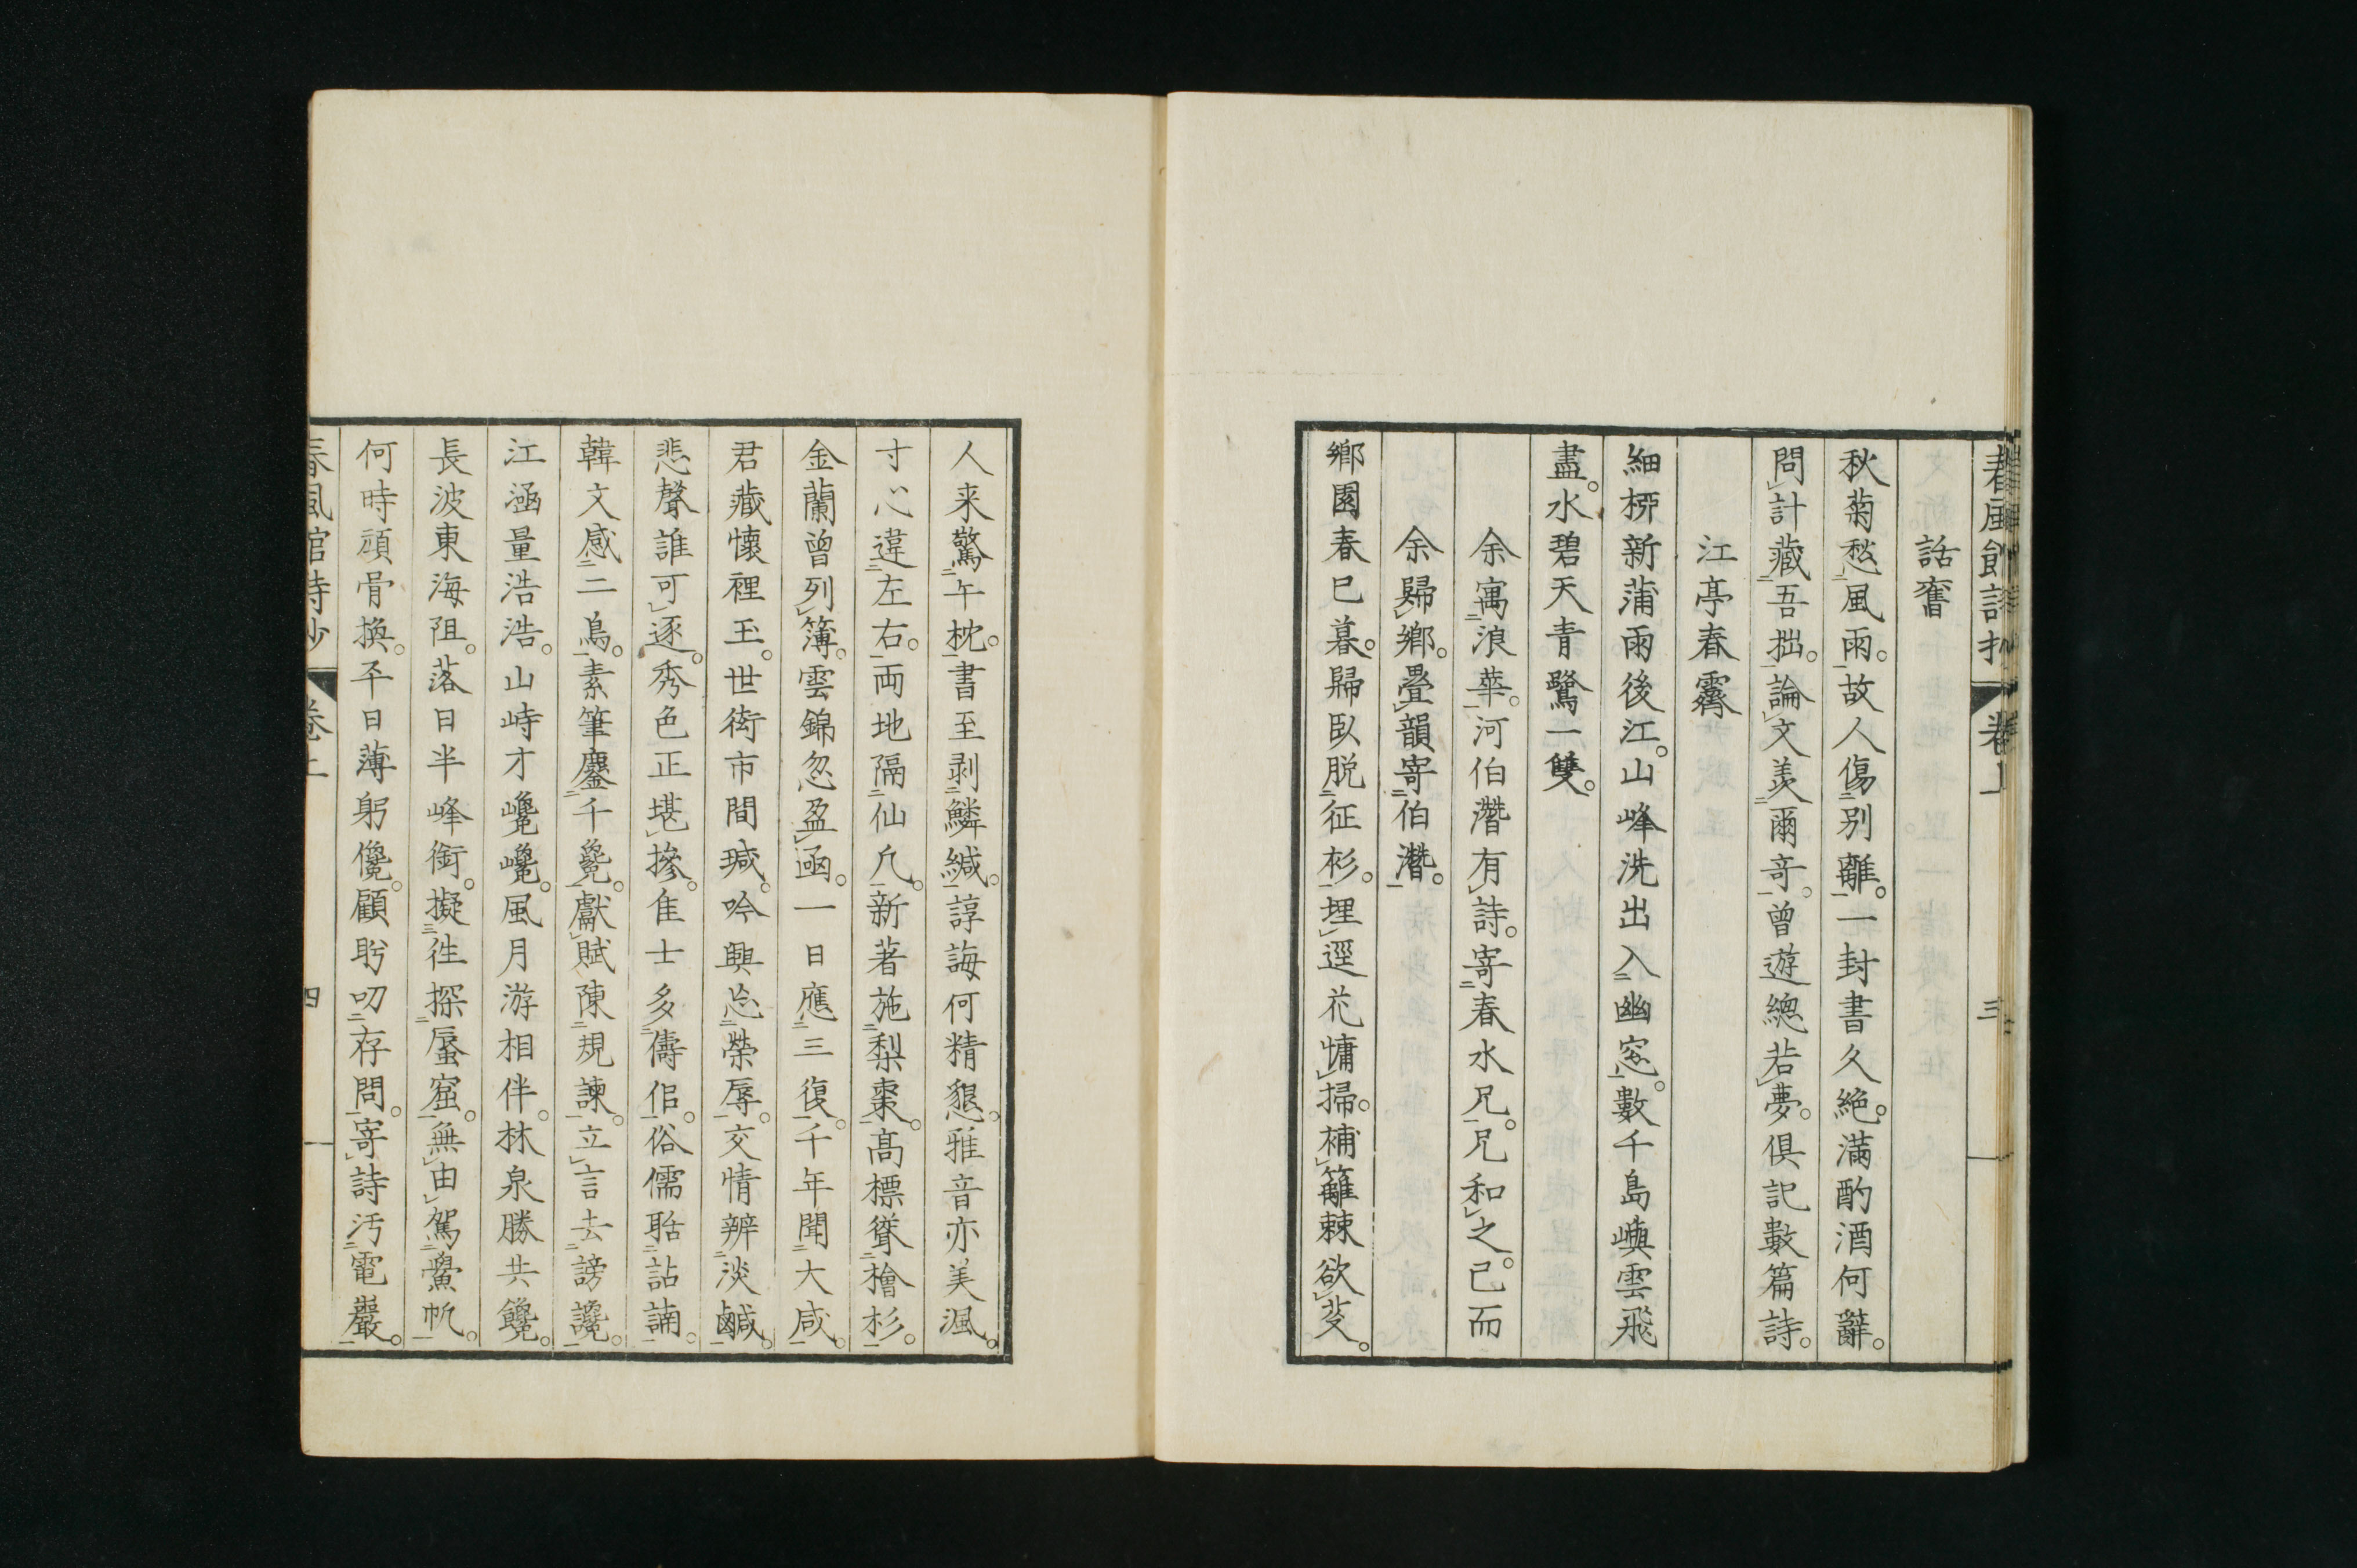 春風館詩抄 卷上 三
話奮
秋菊愁風雨。故人傷別離。一封書久絶。滿酌酒何辭。
問計藏吾拙。論文羨爾竒。曾遊總若夢。倶記數篇詩。
江亭春霽
細栁新蒲雨後江。山峰洗出入幽窓。數千島嶼雲飛
盡。水碧天青鷺一雙。
余寓浪華。河伯濳有詩。寄春水兄。兄和之。已而
余歸鄉。疊韻寄伯濳。
鄉園春已暮。歸臥脱征衫。埋逕花慵掃。補籬棘欲芟。
人来驚午枕。書至剥鱗緘。諄誨何精懇。雅音亦美渢。
寸心違左右。両地隔仙凡。新著施梨棗。高標聳檜杉。
金蘭曾列簿。雲錦忽盈函。一日應三復。千年聞大咸。
君藏懷裡玉。世衒市間瑊。吟興忘榮辱。交情辨淡鹹。
悲聲誰可逐。秀色正堪摻。隹士多儔侶。俗儒聒詀諵。
韓文感二鳥。素筆鏖千毚。獻賦陳規諫。立言去謗讒。
江涵量浩浩。山峙才巉巉。風月游相伴。林泉勝共饞。
長波東海阻。落日半峰銜。擬徃探蜃窟。無由駕鱟帆。
何時頑骨換。平日薄躬儳。顧眄叨存問。寄詩汚電巖。
春風館詩抄 卷上 四